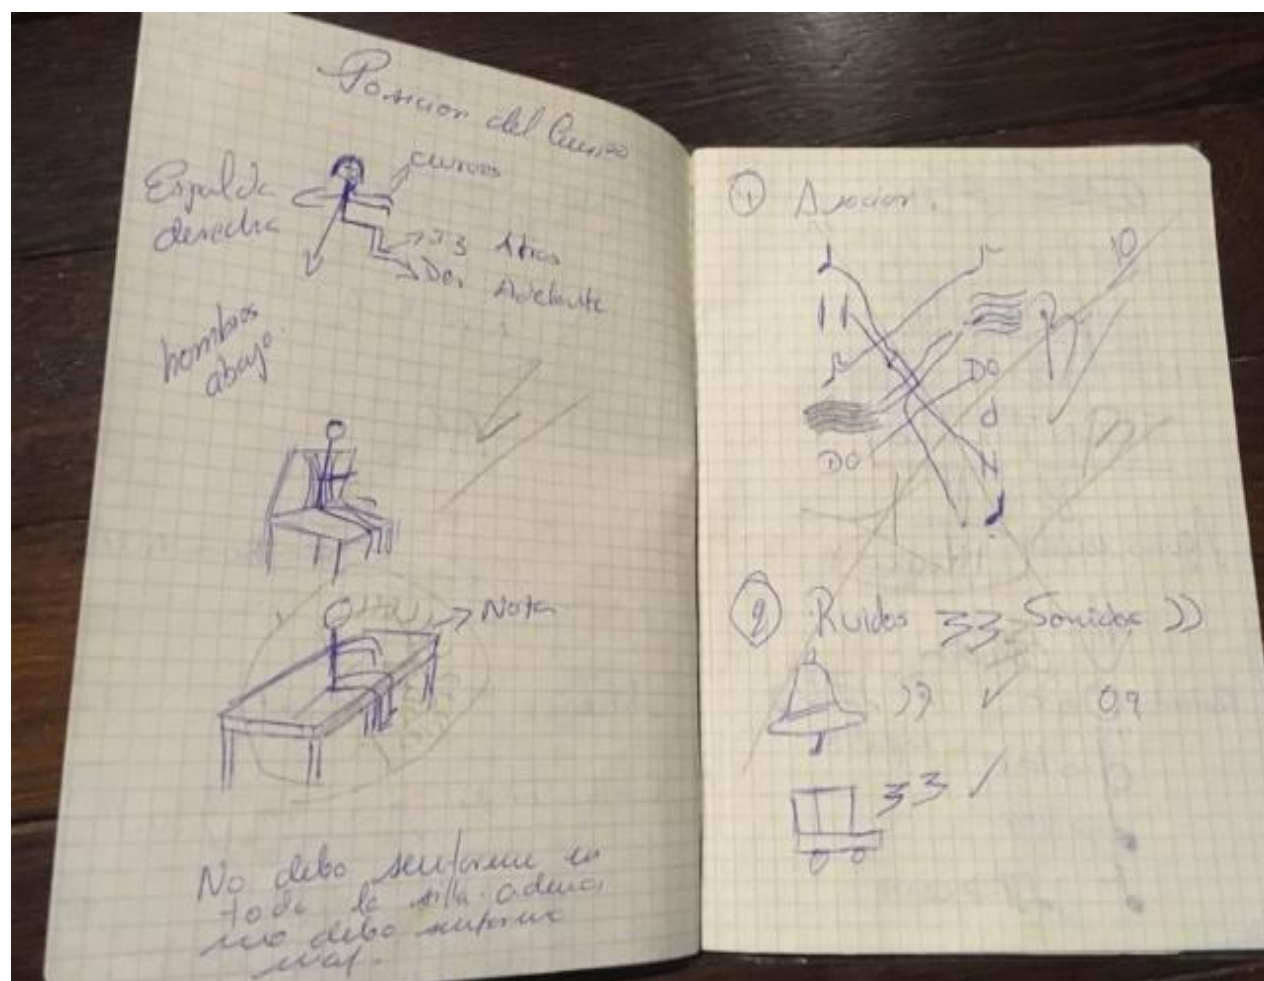 Posicion del Cuerpo
Espalda
derecha
curvos
Atras
Adelante
hombros
abajo.
Nota
No debo sentarme en
toda la silla. ademas
no debo sentarme
mal.
1 Asociar.
10
DO
d
DO
2 Ruidos 33 Sonidos ))
)) ✓ 0,9
33 /